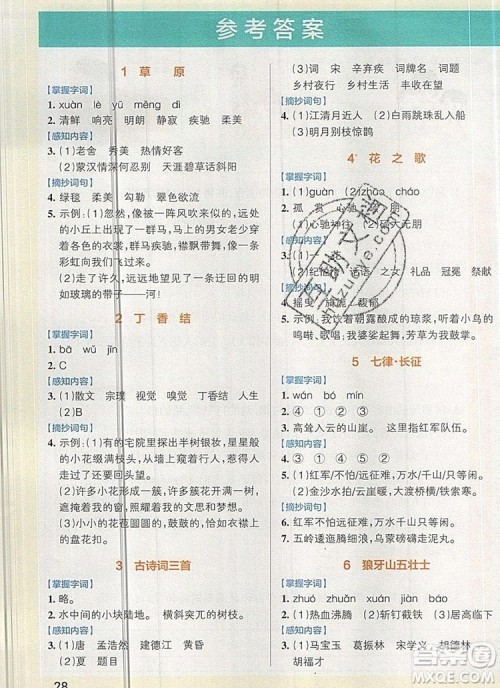 参考答案
1 草 原
【掌握字词】
1. xuàn lè yū měng dì
2. 清鲜 响亮 明朗 静寂 疾驰 柔美
【感知内容】
3. (1)老舍 秀美 热情好客
(2)蒙汉情深何忍别 天涯碧草话斜阳
【摘抄词句】
4. 绿毯 柔美 勾勒 翠色欲流
5. 示例:(1)忽然,像被一阵风吹来似的,远处的小丘上出现了一群马,马上的男女老少穿着各色的衣裳,群马疾驰,襟飘带舞,像一条彩虹向我们飞过来。
(2)走了许久,远远地望见了一条迂回的明如玻璃的带子——河!
2 丁 香 结
【掌握字词】
1. bā wǔ jǐn
2. C
【感知内容】
3. (1)散文 宗璞 视觉 嗅觉 丁香结 人生
(2)B
【摘抄词句】
4. 示例:(1)有的宅院里探出半树银妆,星星般的小花缀满枝头,从墙上窥着行人,惹得人走过了,还要回头望。
(2)许多小花形成一簇,许多簇花开满一树,遮掩着我的窗,照耀着我的文思和梦想。
(3)小小的花苞圆圆的,鼓鼓的,恰如衣襟上的盘花扣。
3 古诗词三首
【掌握字词】
1. 略。
2. 水中间的小块陆地。 横斜交叉的树枝。
【感知内容】
3. (1)唐 孟浩然 建德江 黄昏
(2)夏 题目
28
(3)词 宋 辛弃疾 词牌名 题目
乡村夜行 乡村生活 丰收在望
【摘抄词句】
4. (1)江清月近人 (2)白雨跳珠乱入船
(3)明月别枝惊鹊
4* 花 之 歌
【掌握字词】
1. (1)guàn (2)zhuó cháo
2. 孤 赏
【感知内容】
3. (1)一
【摘抄词句】
4. 摇曳 旖旎 馥郁
5. 示例:我饮着朝露酿成的琼浆,听着小鸟的鸣啭、歌唱;我婆娑起舞,芳草为我鼓掌。
5 七律·长征
【掌握字词】
1. wán bó mín
2. ④ ① ② ③
3. 高耸入云的山崖。 开颜
【感知内容】
4. ⑥ ④ ② ⑤ ③ ①
5. (1)红军/不怕/远征难,万水/千山/只等闲。
(2)金沙/水拍/云崖暖,大渡/桥横/铁索寒。
【摘抄词句】
4. 红军不怕远征难,万水千山只等闲。
5. 五岭逶迤腾细浪,乌蒙磅礴走泥丸。
6 狼牙山五壮士
【掌握字词】
1. zhuó zhuǎn xuán jiàn háo
2. (1)热血沸腾 (2)斩钉截铁 (3)居高临下
【感知内容】
3. (1)马宝玉 葛振林 宋学义 胡德林
胡福才